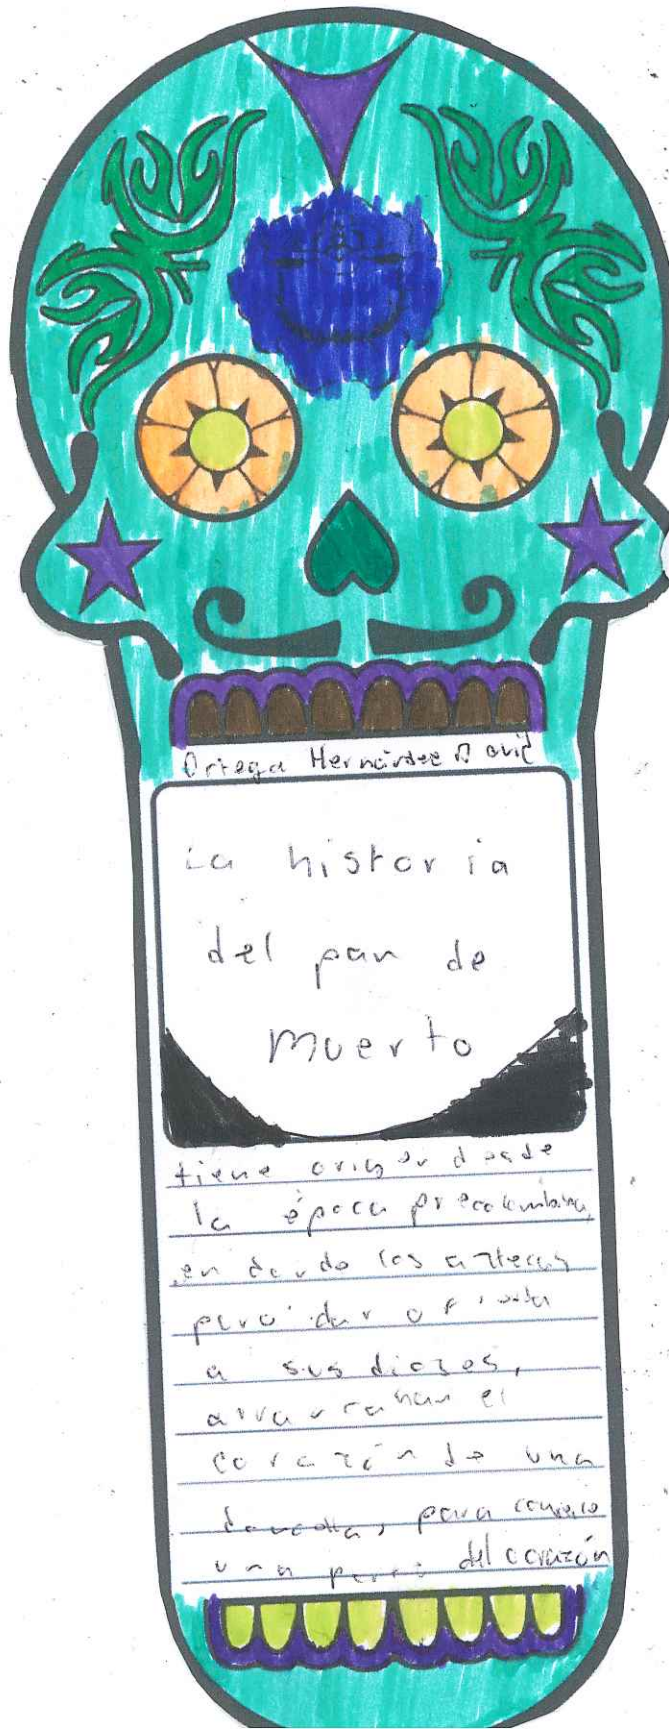 Ortega Hernández David
La historia
del pan de
Muerto
tiene origen desde
la época precolombina,
en donde los aztecas
para dar ofrenda
a sus dioses,
arrancaban el
corazón de una
doncella, para
una parte del corazón